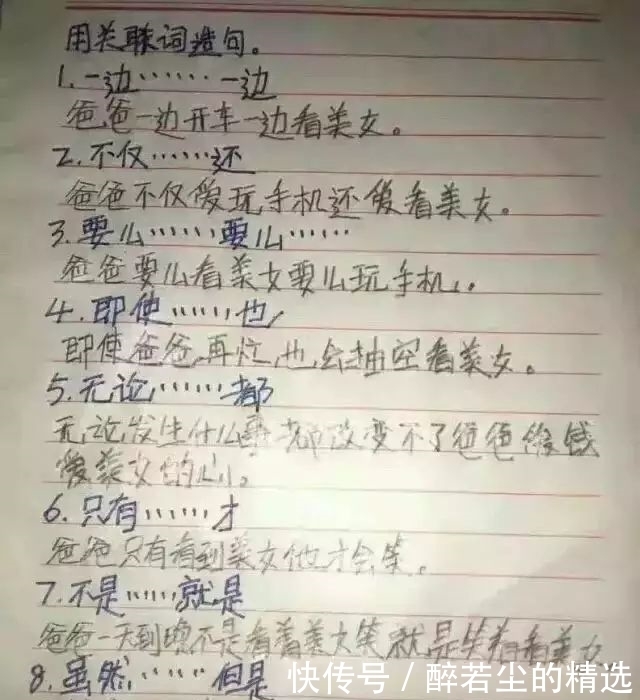 用关联词造句。
1.一边……一边
爸爸一边开车一边看美女。
2.不仅……还
爸爸不仅爱玩手机还爱看美女。
3.要么……要么……
爸爸要么看美女要么玩手机。
4.即使……也
即使爸爸再忙,也会抽空看美女。
5.无论……都
无论发生什么事都改变不了爸爸爱钱
爱美女的心。
6.只有……才
爸爸只有看到美女他才会笑。
7.不是……就是
爸爸一天到晚不是看着美女笑就是笑着看美女
8.虽然……但是
快传号/醉若尘的精选